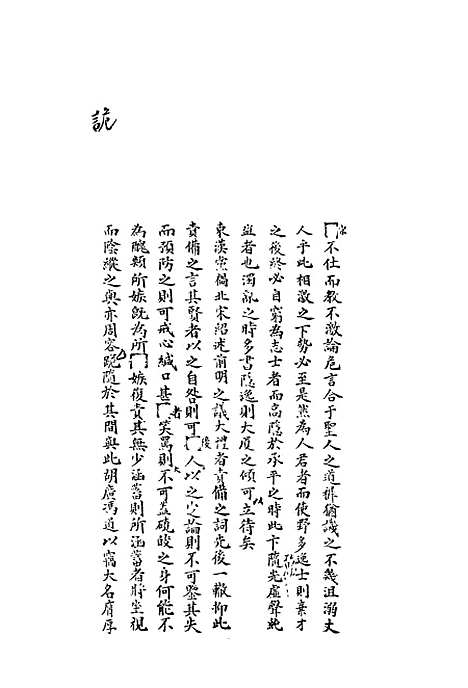 詭
不仕而教不激論危言合于聖人之道猶譏之不幾沮溺丈
人乎此相激之下勢必至是然為人君者而使野多逸士則棄才
之後終必自窮為志士者而高隱於承平之時此卞隨光虛聲
者也濁亂之時多書隱逸則大廈之傾可立待矣
東漢黨錮北宋紹述前明之議大禮者責備之詞先後一轍抑此
責備之言其賢者以之自咎則可人以之論則不可鑒其失
而預防之則可戒心緘口甚者笑罵則不可蓋皦皦之身何能不
為醜類所嫉旣為所嫉復責其無少涵蓄則所涵蓄者將坐視
而陰縱之與亦周容詭隨於其間與此胡廣馮道以竊大名膺厚